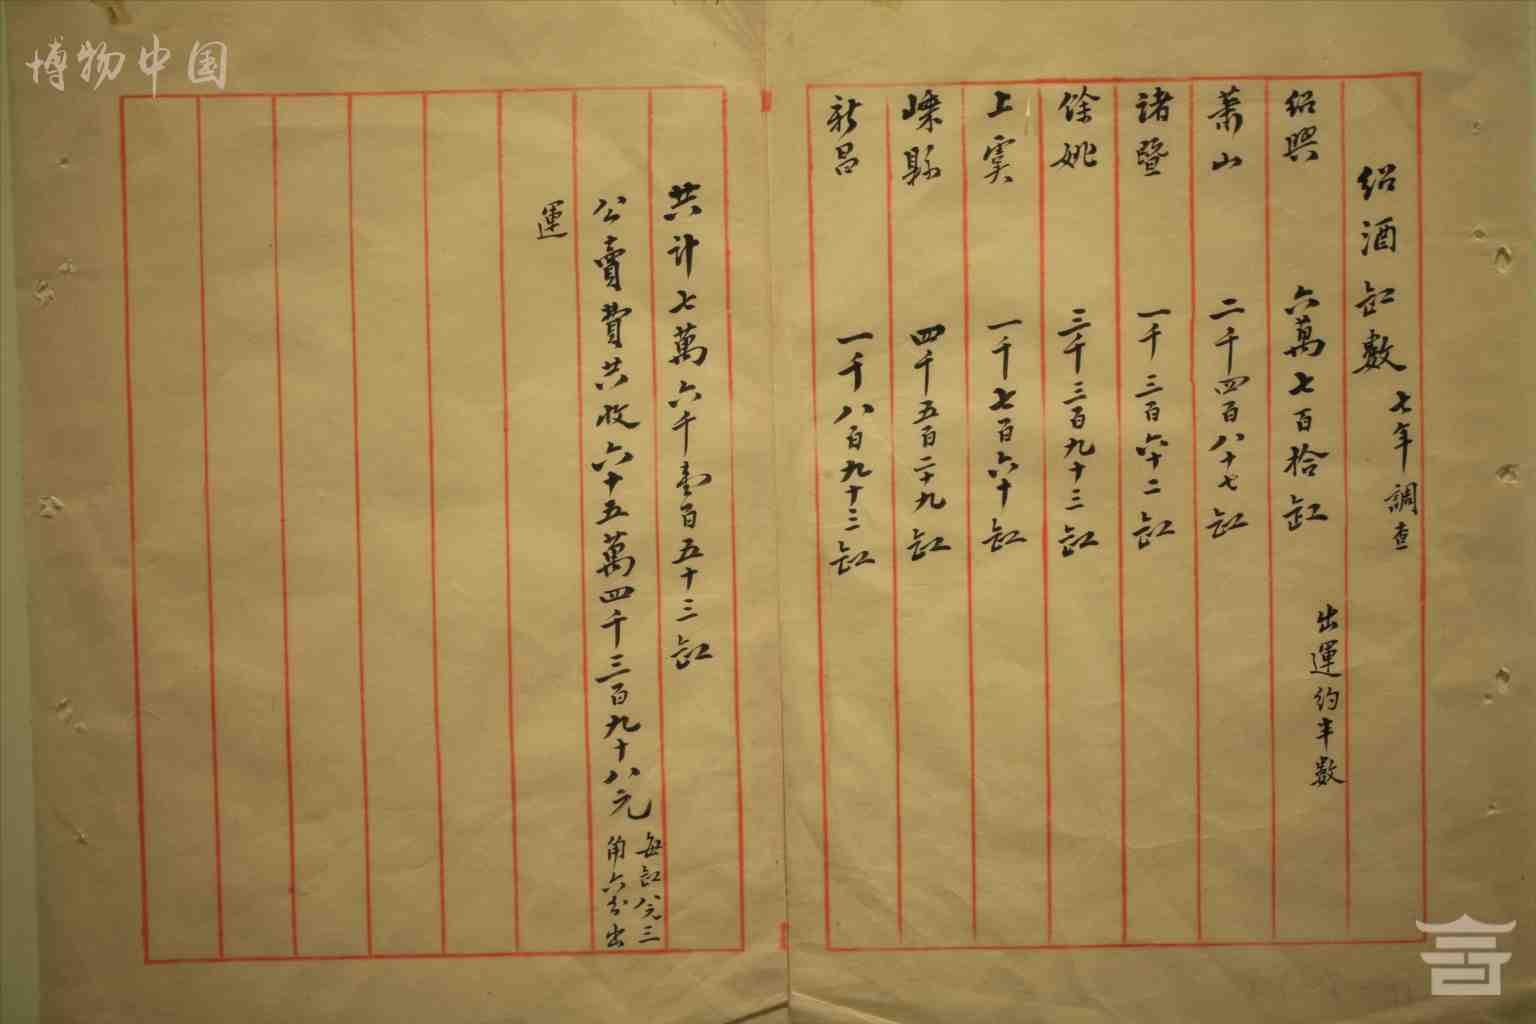 博物中国
绍酒缸數 七年調查
出運約半數
绍興 六萬七百拾缸
萧山 二千四百八十七缸
諸暨 一千三百六十二缸
餘姚 三千三百九十三缸
上虞 一千七百六十缸
嵊縣 四千五百二十九缸
新昌 一千八百九十三缸
共计七萬六千壹百五十三缸
公賣費共收六十五萬四千三百九十八元
每缸八元三
角六分出
運